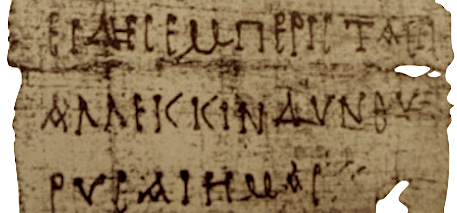 ΕΙΔΗϹΕΜΠΕΡΙϹΤΑϹΙ
ΑΛΛΕΙΚΚΙΝΔΥΝΟΥ
ΡΥϹΑΙΗΜΑϹ